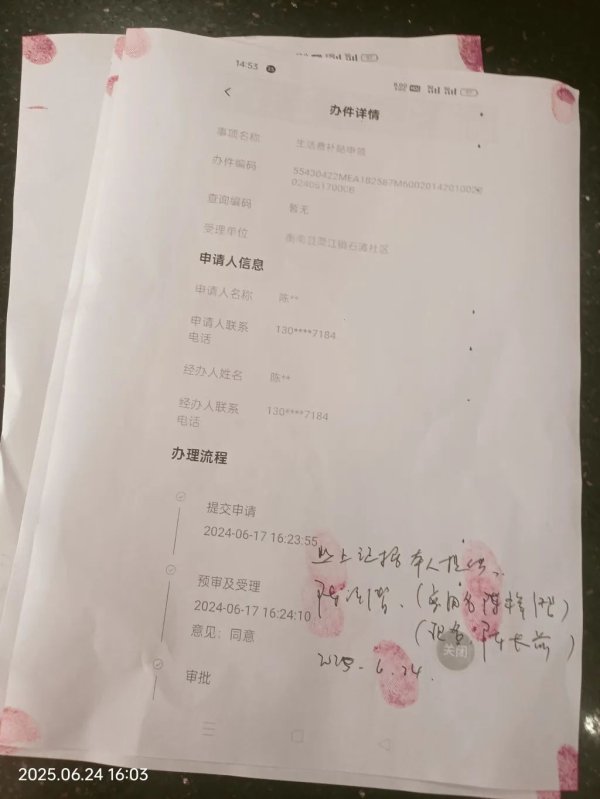 14:53
办件详情
事项名称 生活费补贴申领
办件编码
查询编码 暂无
受理单位
申请人信息
申请人名称 陈**
申请人联系电话 130****7184
经办人姓名 陈**
经办人联系电话 130****7184
办理流程
提交申请
2024-06-17 16:23:55
预审及受理
2024-06-17 16:24:10
意见：同意
审批
以上证据本人提供、
2025.6.24.
关闭
2025.06.24 16:03